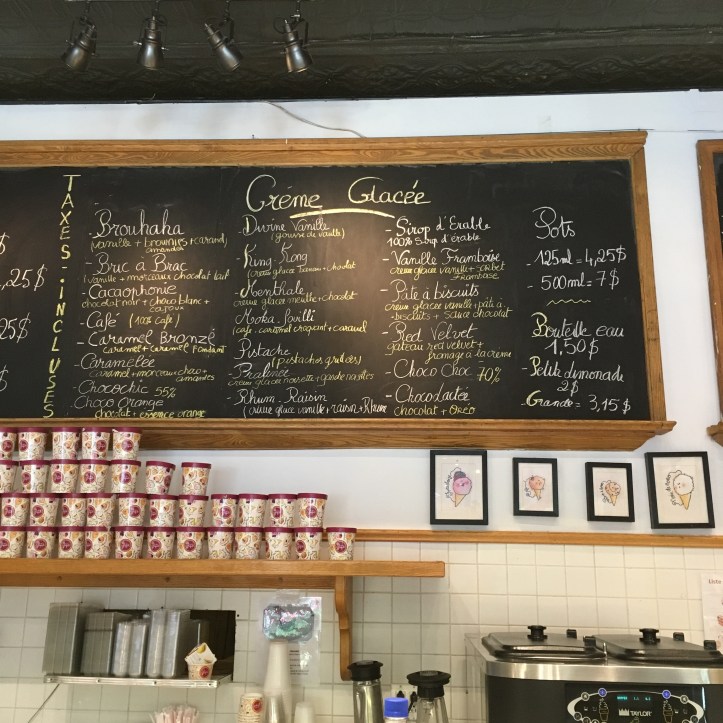 ,25$
25$
TAXES-INCLUSES
Crème Glacée
- Brouhaha
(vanille + brownies + caramel)
amandes
- Bric à Brac
(vanille + morceaux chocolat lait
- Cacaophonie
chocolat noir + choco blanc +
cajoux
- Café (100% Café)
- Caramel Bronzé
caramel + caramel fondant
- Caramélée
caramel + morceaux choco +
amandes
- Chocochic 55%
Choco Orange
chocolat + essence orange
- Divine Vanille
(gousse de vanille)
- King-Kong
(crème glacée banane + chocolat
- Menthalé
crème glacée menthe + chocolat
- Mooka-
(café. caramel croquant + caramel
- Pistache
(Pistaches grillées)
- Pralinée
crème glacée noisette +
- Rhum. Raisin
(crème glacée vanille + raisin + Rhum
- Sirop d'Érable
100% Sirop d'érable
- Vanille Framboise
crème glacée vanille + sorbet
framboise
- Pâte à biscuits
crème glacée vanille + pâte à
biscuits + sauce chocolat
- Red Velvet
gateau red velvet +
fromage à la crème
- Choco Choc 70%
- Chocolactée
chocolat + Oreo
Pots
- 125ml = 4,25$
- 500ml = 7$
Bouteille eau
1,50$
- Petite limonade
2$
- Grande = 3,15$
TAYLOR